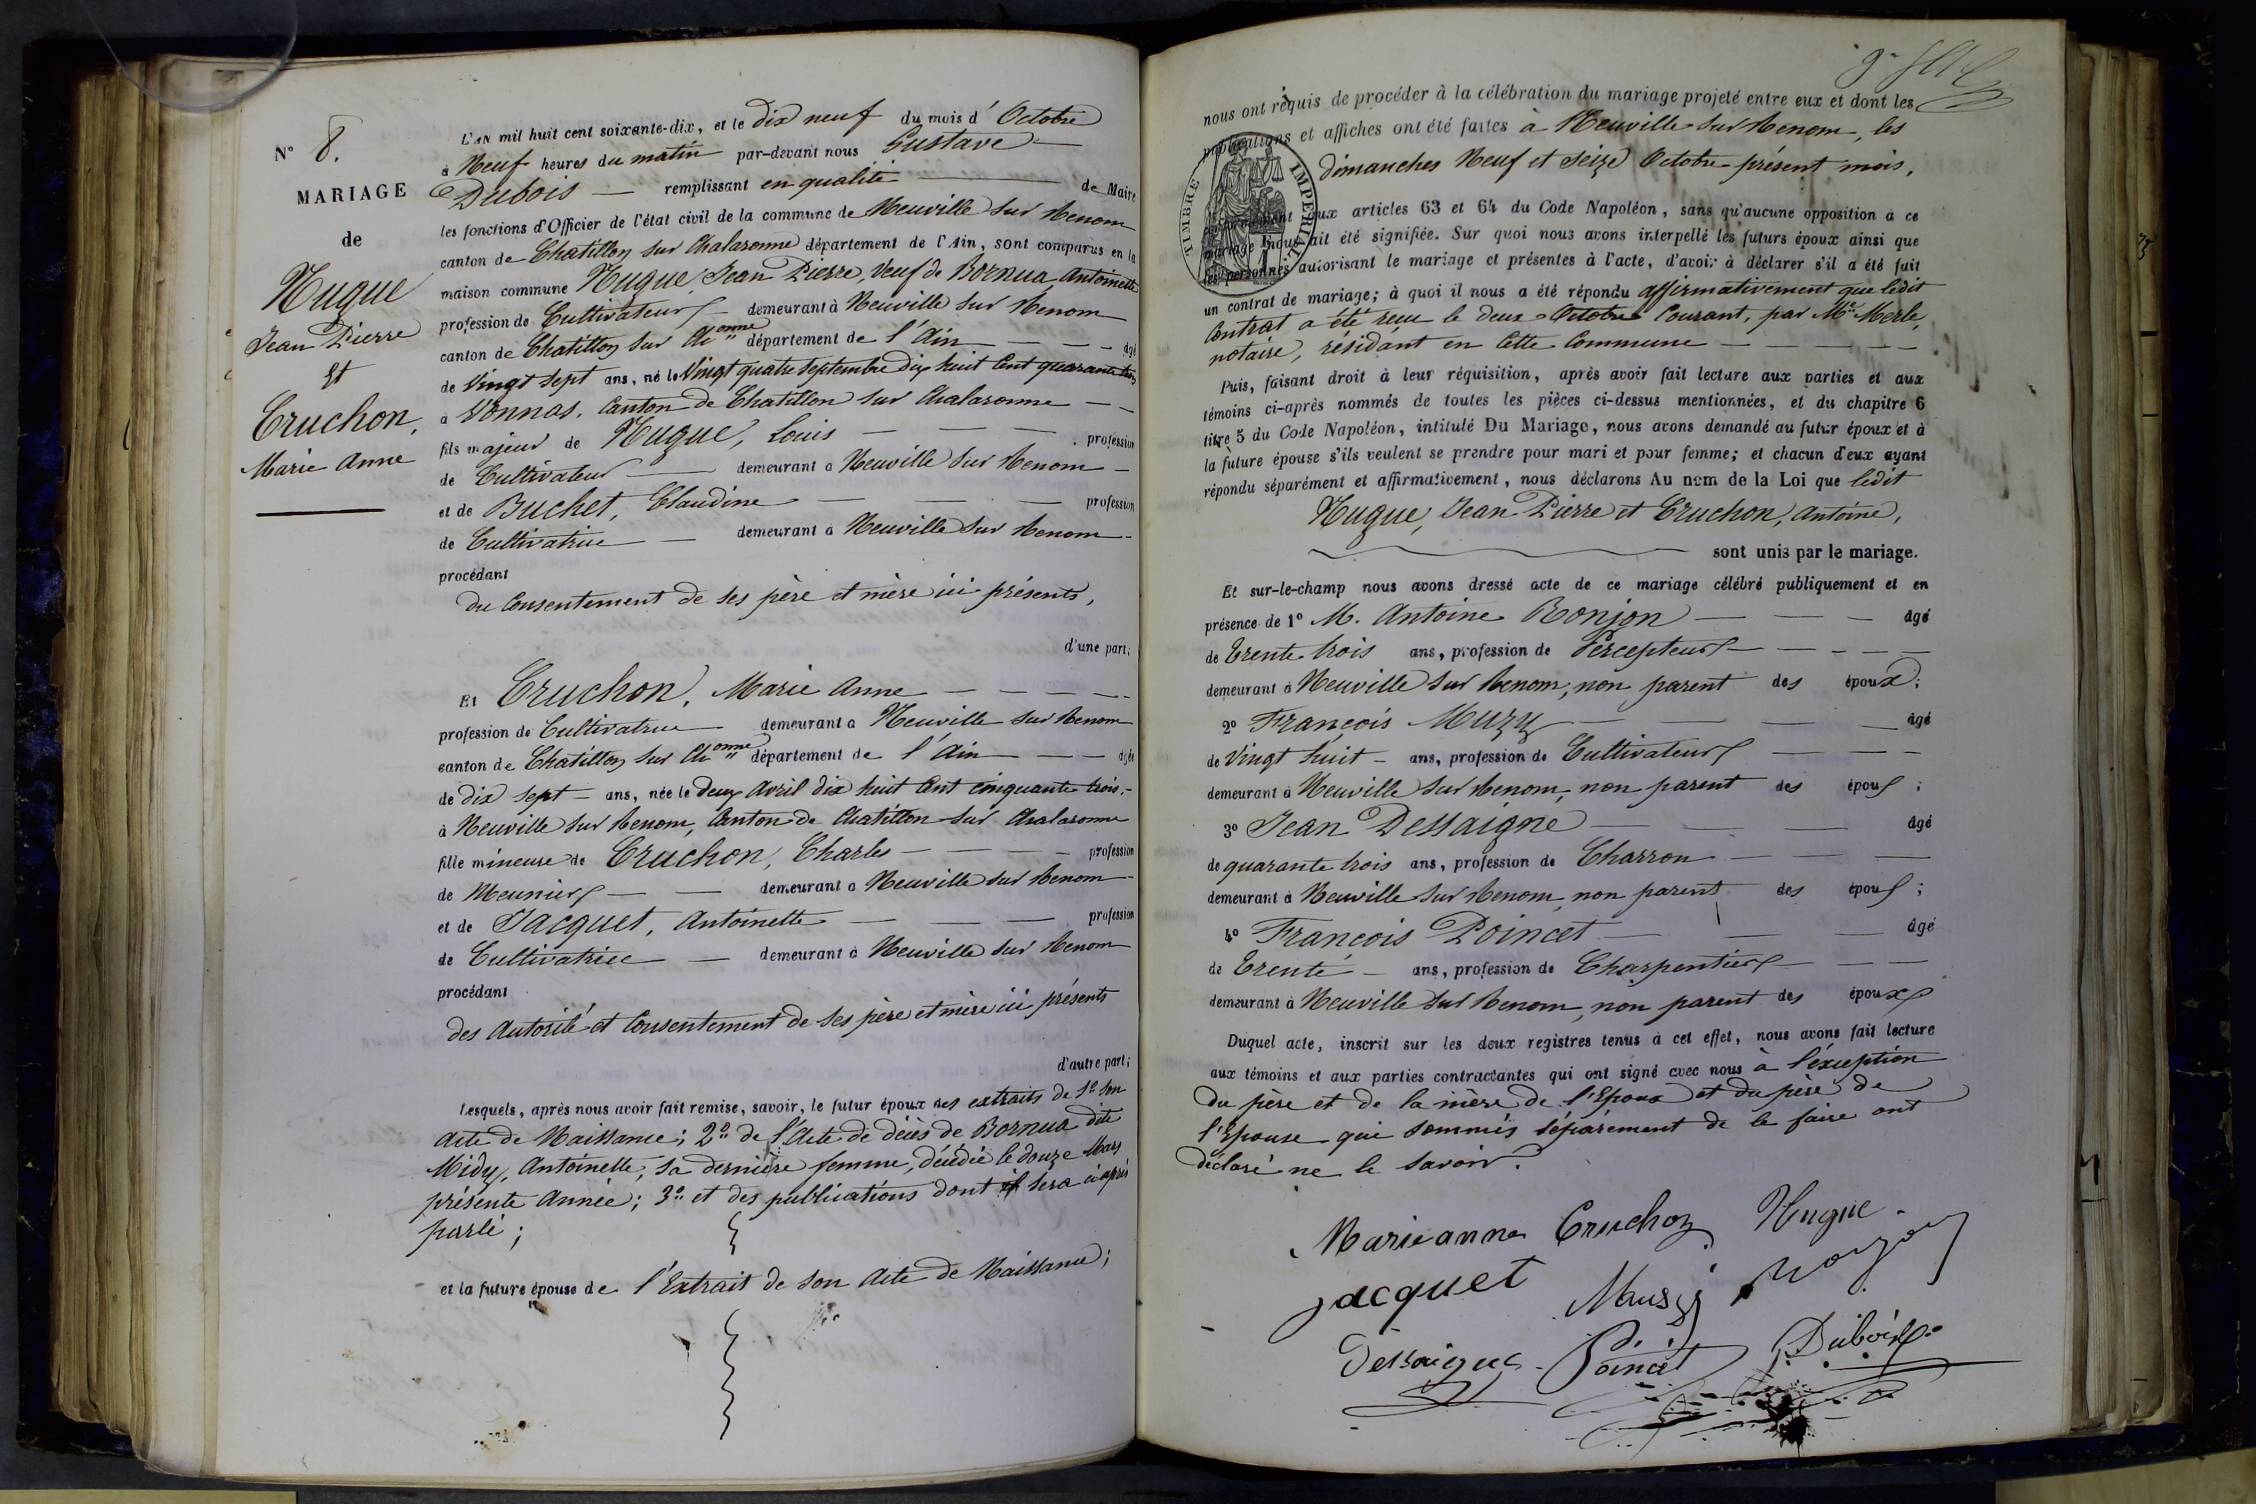 N° 8.
MARIAGE
de
Hugue
Jean Pierre
Et
Cruchon,
Marie Anne
L'AN mil huit cent soixante-dix, et le Dix neuf du mois d'Octobre
à Neuf heures du matin par-devant nous Gustave
Dubois — remplissant en qualité — de Maire
les fonctions d'Officier de l'état civil de la commune de Neuville sur Renom
canton de Chatillon sur Chalaronne département de l'Ain, sont comparus en la
maison commune Hugue, Jean Pierre, Veuf de Bornua, Antoinette
profession de Cultivateur demeurant à Neuville sur Renom
canton de Chatillon sur Ch.onne département de l'Ain — — âgé
de Vingt sept ans, né le Vingt quatre Septembre Dix huit Cent quarante trois
à Vonnas, Canton de Chatillon sur Chalaronne — —
fils majeur de Hugue, Louis — — — profession
de Cultivateur — demeurant à Neuville sur Renom —
et de Buchet, Claudine — — — profession
de Cultivatrice — demeurant à Neuville sur Renom -
procédant
du Consentement de ses père et mère ici présents,
d'une part;
Et Cruchon, Marie Anne — — — — -
profession de Cultivatrice demeurant à Neuville sur Renom
canton de Chatillon sur Ch.onne département de l'Ain — — âgée
de dix sept — ans, née le deux Avril dix huit Cent cinquante trois, -
à Neuville sur Renom, Canton de Chatillon sur Chalaronne
fille mineure de Cruchon, Charles — — — — profession
de Meunier — — demeurant à Neuville sur Renom -
et de Jacquet, Antoinette — — — profession
de Cultivatrice — demeurant à Neuville sur Renom
procédant
des Autorité et Consentement de ses père et mère ici présents
d'autre part;
Lesquels, après nous avoir fait remise, savoir, le futur époux des extraits de 1° son
Acte de Naissance; 2° de l'Acte de décès de Bornua dite
Midy, Antoinette, sa dernière femme, décédée le douze Mars
présente Année; 3° et des publications dont il sera ci après
parlé;
et la future épouse de l'Extrait de son Acte de Naissance;
nous ont requis de procéder à la célébration du mariage projeté entre eux et dont les
publications et affiches ont été faites à Neuville sur Renom, les
dimanches Neuf et Seize Octobre présent mois,
TIMBRE IMPERIAL
conformément aux articles 63 et 64 du Code Napoléon, sans qu'aucune opposition à ce
mariage nous ait été signifiée. Sur quoi nous avons interpellé les futurs époux ainsi que
les personnes autorisant le mariage et présentes à l'acte, d'avoir à déclarer s'il a été fait
un contrat de mariage; à quoi il nous a été répondu affirmativement que ledit
Contrat a été reçu le deux Octobre Courant, par Me Merle,
notaire, résidant en Cette Commune — — — — —
Puis, faisant droit à leur réquisition, après avoir fait lecture aux parties et aux
témoins ci-après nommés de toutes les pièces ci-dessus mentionnées, et du chapitre 6
titre 5 du Code Napoléon, intitulé Du Mariage, nous avons demandé au futur époux et à
la future épouse s'ils veulent se prendre pour mari et pour femme; et chacun d'eux ayant
répondu séparément et affirmativement, nous déclarons Au nom de la Loi que ledit
Hugue, Jean Pierre et Cruchon, Antoine,
sont unis par le mariage.
Et sur-le-champ nous avons dressé acte de ce mariage célébré publiquement et en
présence de 1° M. Antoine Ronjon — — — âgé
de Trente trois ans, profession de Percepteur — — — —
demeurant à Neuville sur Renom, non parent des époux;
2° François Muzy — — — — âgé
de Vingt huit — ans, profession de Cultivateur — — —
demeurant à Neuville sur Renom, non parent des époux;
3° Jean Dessaigne — — — âgé
de quarante trois ans, profession de Charron — — —
demeurant à Neuville sur Renom, non parent des époux;
4° François Poincet — — âgé
de Trente — ans, profession de Charpentier — —
demeurant à Neuville sur Renom, non parent des époux
Duquel acte, inscrit sur les deux registres tenus à cet effet, nous avons fait lecture
aux témoins et aux parties contractantes qui ont signé avec nous à l'éxception
du père et de la mère de l'Epoux et du père de
l'Epouse qui sommés séparément de le faire ont
déclaré ne le savoir.
Marieanne Cruchon Hugue
Jacquet Muzy Ronjon
Dessaigne Poincet Dubois